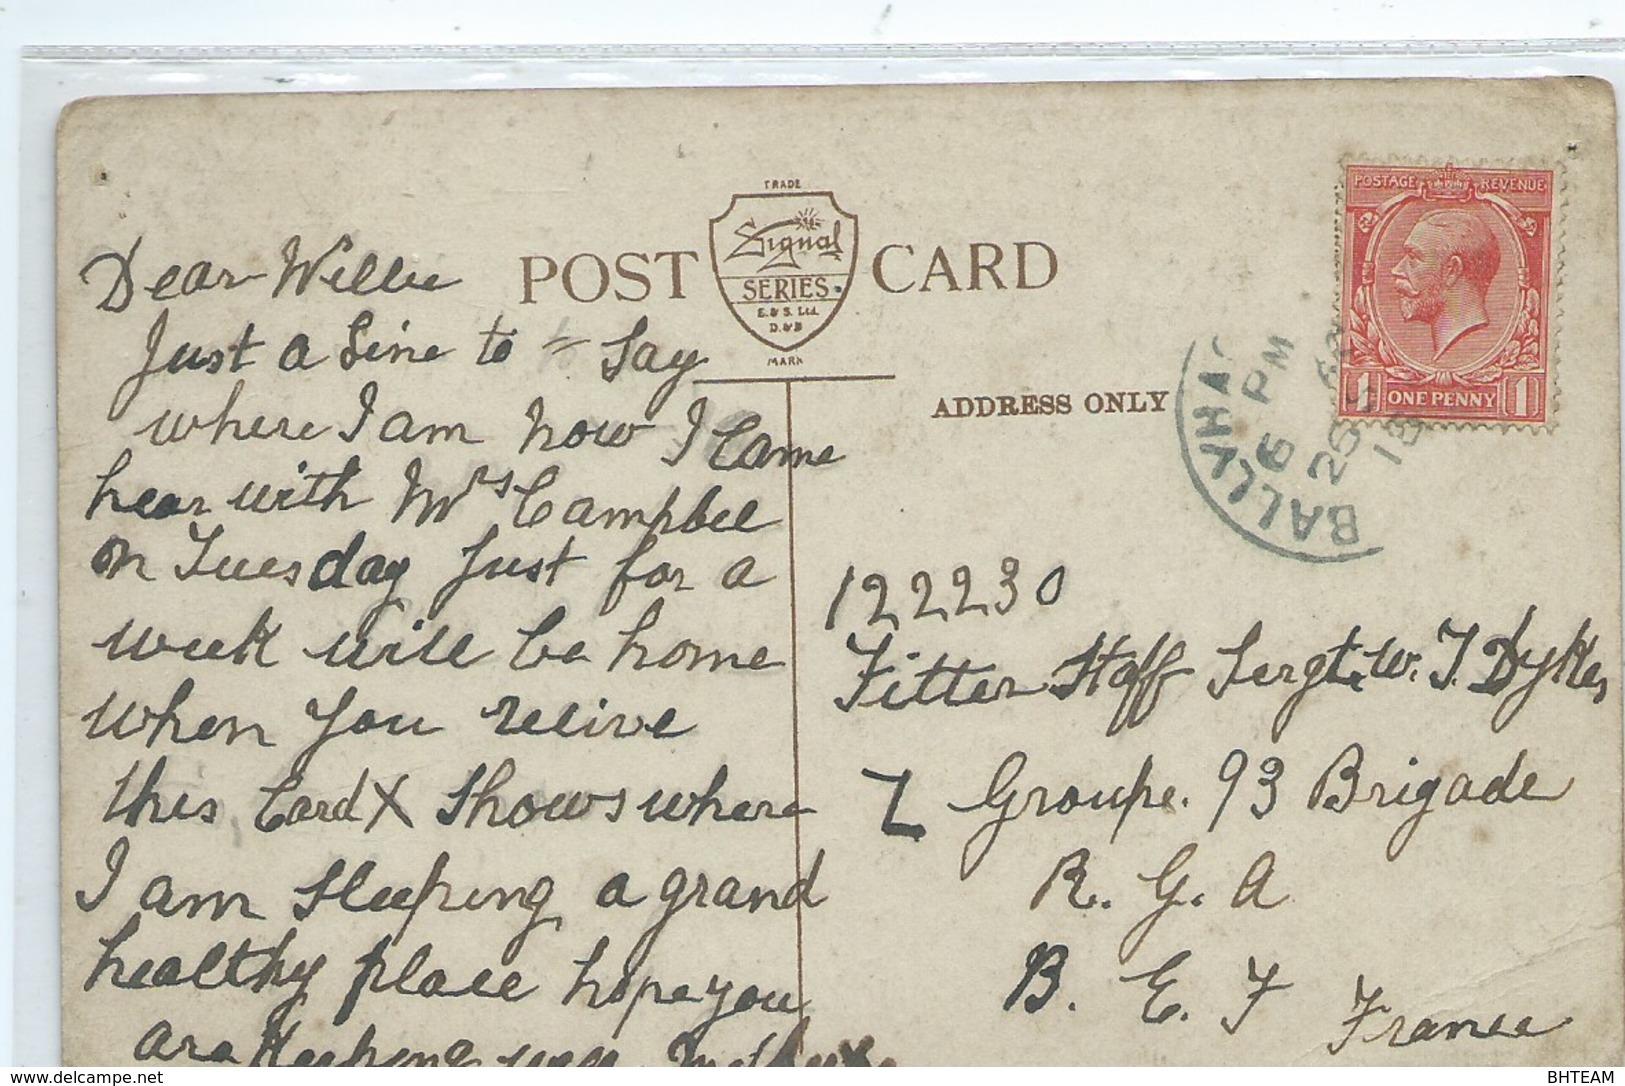 TRADE
Signal
SERIES.
E. & S. Ltd.
D. & B
MARK
POST CARD
ADDRESS ONLY
POSTAGE REVENUE
1 ONE PENNY 1
BALLYHA
6 PM
26
18
Dear Willie
Just a Line to Say
where I am now I Came
hear with Mrs Campbell
on Tuesday Just for a
week will be home
when you recive
this Card X Shows where
I am Sleeping a grand
healthy place hope you
are Keeping well
122230
Fitter Staff Sergt. W. J. Dykes
Groupe. 93 Brigade
R. G. A
B. E. F France
BHTEAM